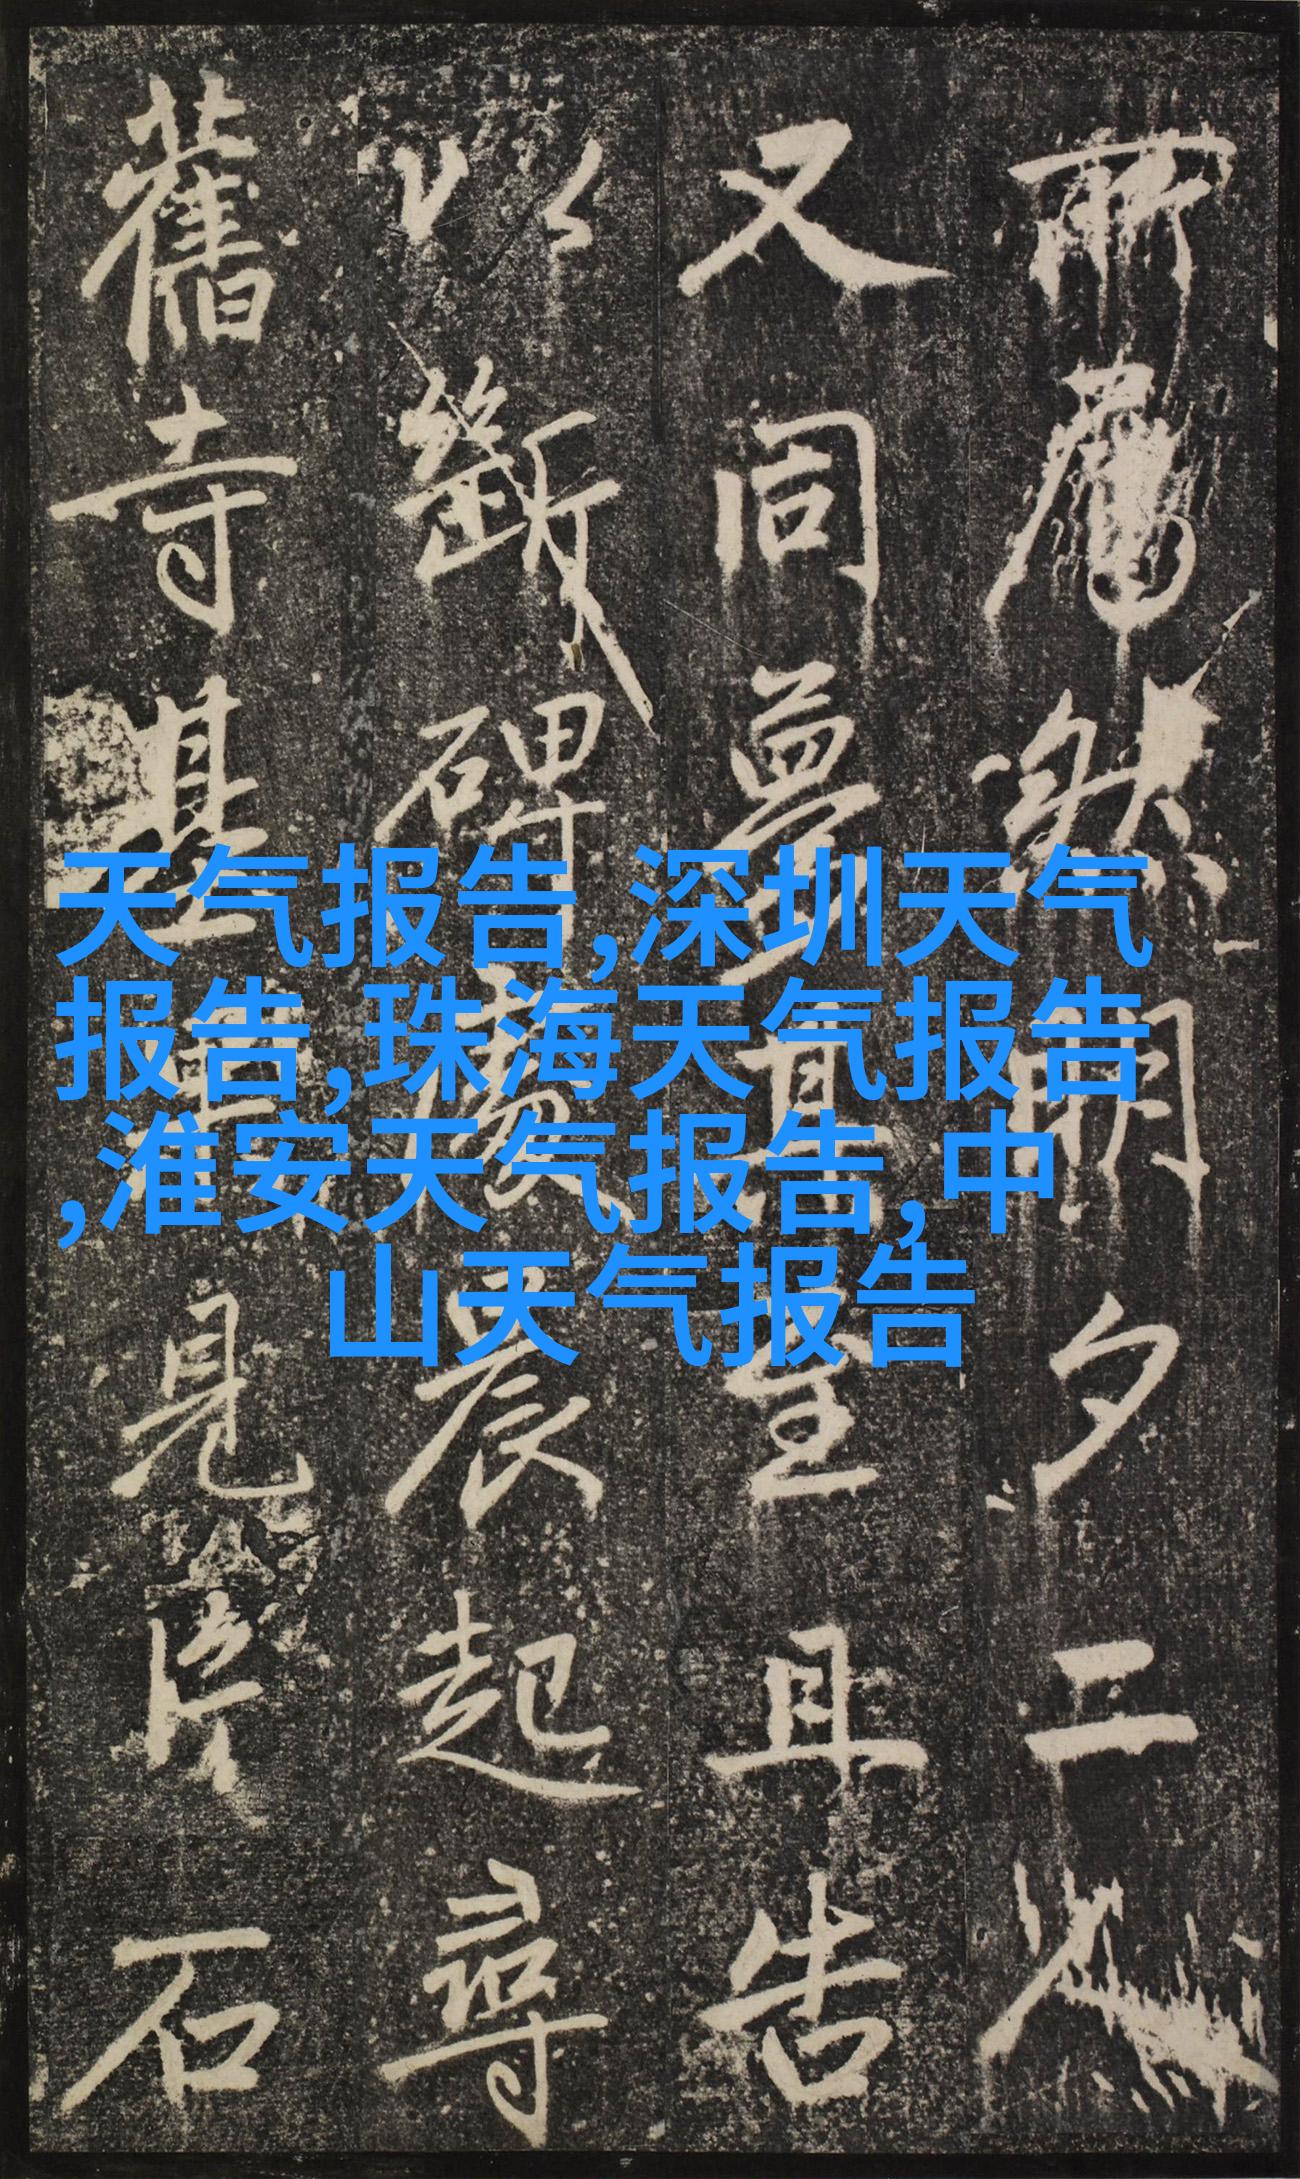 所然明夕二
又同夢且告
以斷碑處晨起尋
舊寺基重見片石
天气报告,深圳天气
报告,珠海天气报告
,淮安天气报告,中
山天气报告